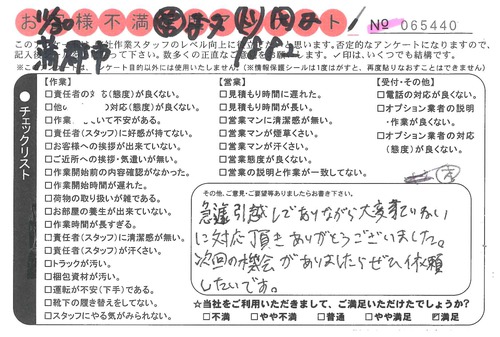 お 様不満 ート
No 065440
11/30
このア 社作業スタッフのレベル向上に 思います。否定的なアンケートになりますので、
記入後 って下さい。数多くの正直な ます。✓印は、いくつでも結構です。
※この ート は、アンケート目的以外には使用いたしません。(※情報保護シールは1度はがすと、再度貼りなおすことはできません)
チェックリスト
【作業】
□責任者の 応(態度)が良くない。
□他 対応(態度)が良くない。
□作業 いて不安がある。
□責任者(スタッフ)に好感が持てない。
□お客様への挨拶が出来ていない。
□ご近所への挨拶・気遣いが無い。
□作業開始前の内容確認がなかった。
□作業開始時間が遅れた。
□荷物の取り扱いが雑である。
□お部屋の養生が出来ていない。
□作業時間が長すぎる。
□責任者(スタッフ)に清潔感が無い。
□責任者(スタッフ)が汗くさい。
□トラックが汚い。
□梱包資材が汚い。
□運転が不安(下手)である。
□靴下の履き替えをしてない。
□スタッフにやる気がみられない。
【営業】
□見積もり時間に遅れた。
□見積もり時間が長い。
□営業マンに清潔感が無い。
□営業マンが煙草くさい。
□営業マンが汗くさい。
□営業態度が良くない。
□営業の説明と作業が一致してない。
【受付・その他】
□電話の対応が良くない。
□オプション業者の説明
・作業が良くない。
□オプション業者の対応
(態度)が良くない。
その他、ご意見・ご要望等ありましたらお書き下さい。
急遽引越しでありながら大変ていねい
に対応頂きありがとうございました。
次回の機会がありましたらぜひ依頼
したいです。
☆当社をご利用いただきまして、ご満足いただけたでしょうか?
□不満 □やや不満 □普通 □やや満足 ☑満足